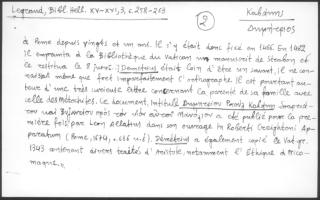 Legrand, Bibl. Hell. XV-XVI, 3, c. 258-259
2
Καβάκης
Δημήτριος
à Rome depuis vingt et un ans. Il s'y était donc fixé en 1466. En 1482
il emprunta à la Bibliothèque du Vatican un manuscrit de Strabon et
le restitua le 8 juin. Démétrius était loin d'être un savant, il ne con-
naissait même que fort imparfaitement l'orthographe. Il est pourtant au-
teur d'une très curieuse lettre concernant la parenté de sa famille avec
celle des Métochites. Ce document, intitulé Δημητρίου Ῥαοὺλ Καβάκη
καὶ Βυζαντίου
a été publié pour la pre-
mière fois par Léon Allatius dans son ouvrage In Roberti Creightoni Ap-
paratum (Rome, 1674, c. 616 u.ἑ.). Démétrius a également copié le Vat. gr.
1343 contenant divers traités d'Aristote, notamment l'Éthique à Nico-
maque.,,